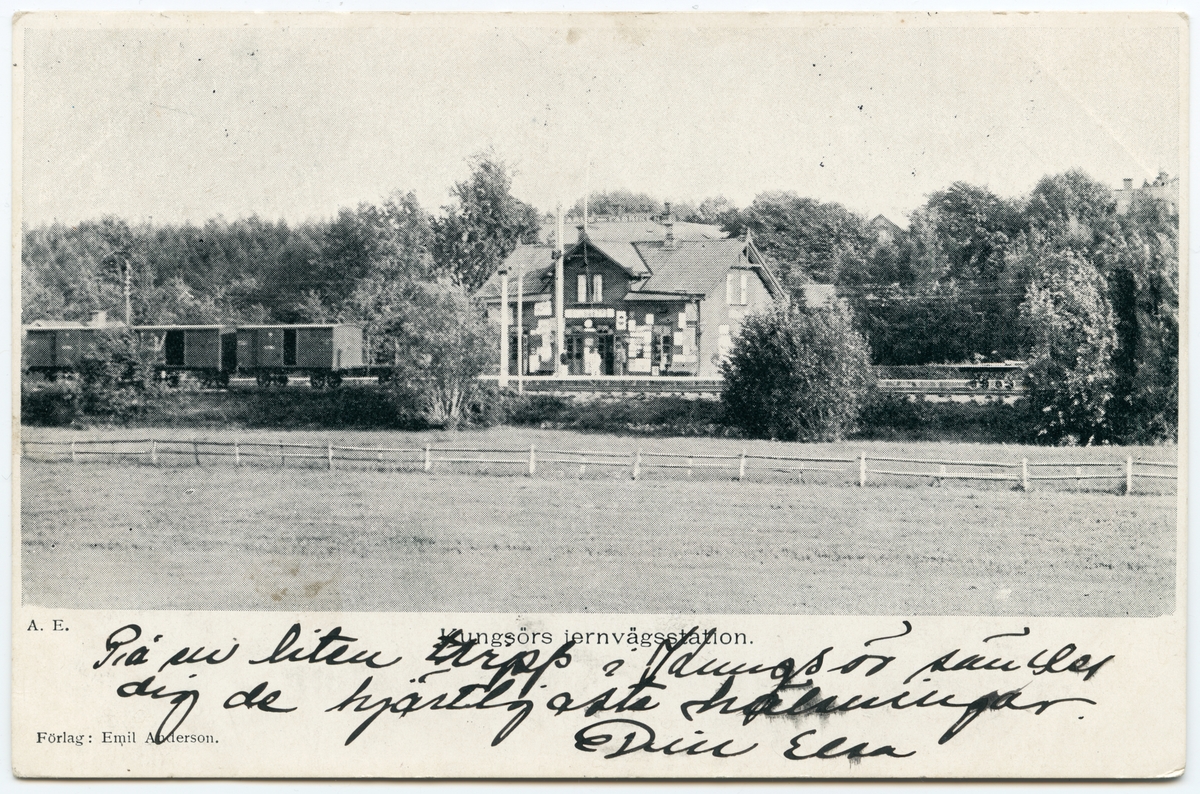 A. E.
Kungsörs jernvägsstation.
På en liten tripp i Kungsör sändes
dig de hjärtligaste hälsningar.
Förlag: Emil Anderson.
Din Elsa